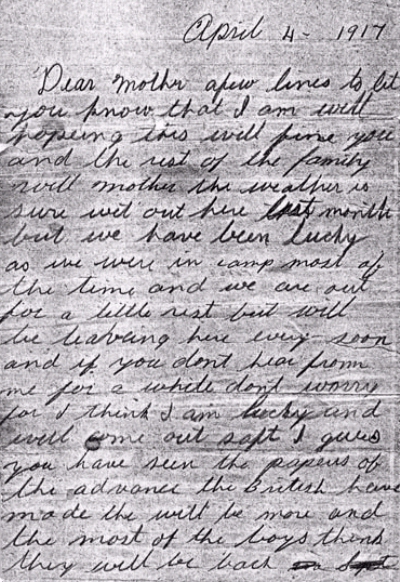 April 4 - 1917
Dear Mother afew lines to let
you know that I am well
hopeing this will fine you
and the rest of the family
well mother the weather is
sure wet out here last month
but we have been lucky
as we were in camp most of
the time and we are out
for a little rest but will
be leaveing here very soon
and if you dont hear from
me for a while dont worry
for I think I am lucky and
will come out saft I guess
you have seen the papers of
the advance the British have
made the will be more and
the most of the boys think
they will be back in Sept